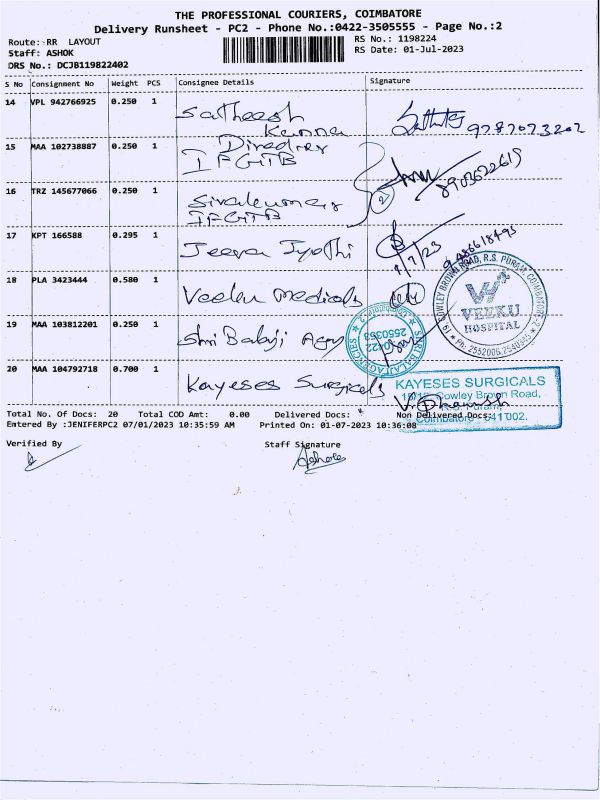 THE PROFESSIONAL COURIERS, COIMBATORE
Delivery Runsheet - PC2 - Phone No.:0422-3505555 - Page No.:2
Route: RR LAYOUT
RS No.: 1198224
Staff: ASHOK
RS Date: 01-Jul-2023
DRS No.: DCJB119822402
S No Consignment No Weight PCS Consignee Details Signature
14 VPL 942766925 0.250 1 Satheesh Kanna 9787073202
15 MAA 102738887 0.250 1 Director IFGTB
16 TRZ 145677066 0.250 1 Sivakumar IFGTB 8903622619
17 KPT 166588 0.295 1 Jeeva Jyothi 1/7/23
18 PLA 3423444 0.580 1 Veeku Medicals
COWLEY BROWN ROAD, R.S. PURAM, COIMBATORE-2
VEEKU
HOSPITAL
19 MAA 103812201 0.250 1 Shri Balaji Agy
SHRI BALAJI AGENCIES
Coimbatore-2
20 MAA 104792718 0.700 1 Kayeses Surgicals
KAYESES SURGICALS
Cowley Brown Road,
R.S. Puram,
Coimbatore - 641 002.
Total No. Of Docs: 20 Total COD Amt: 0.00 Delivered Docs: Non Delivered Docs:
Entered By :JENIFERPC2 07/01/2023 10:35:59 AM Printed On: 01-07-2023 10:36:08
Verified By Staff Signature
Ashok